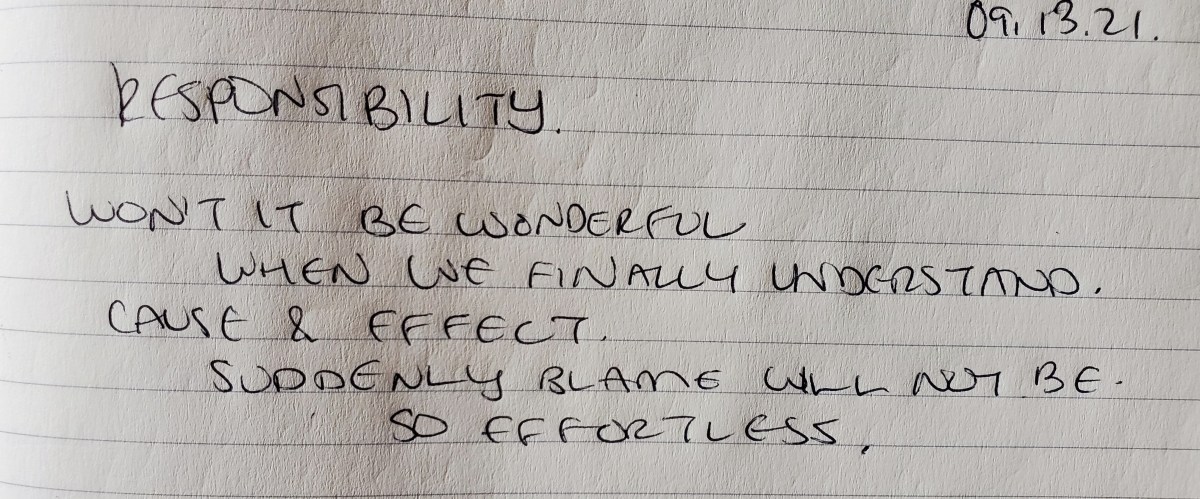 09.13.21.
RESPONSIBILITY.
WON'T IT BE WONDERFUL
WHEN WE FINALLY UNDERSTAND.
CAUSE & EFFECT.
SUDDENLY BLAME WILL NOT BE.
SO EFFORTLESS,